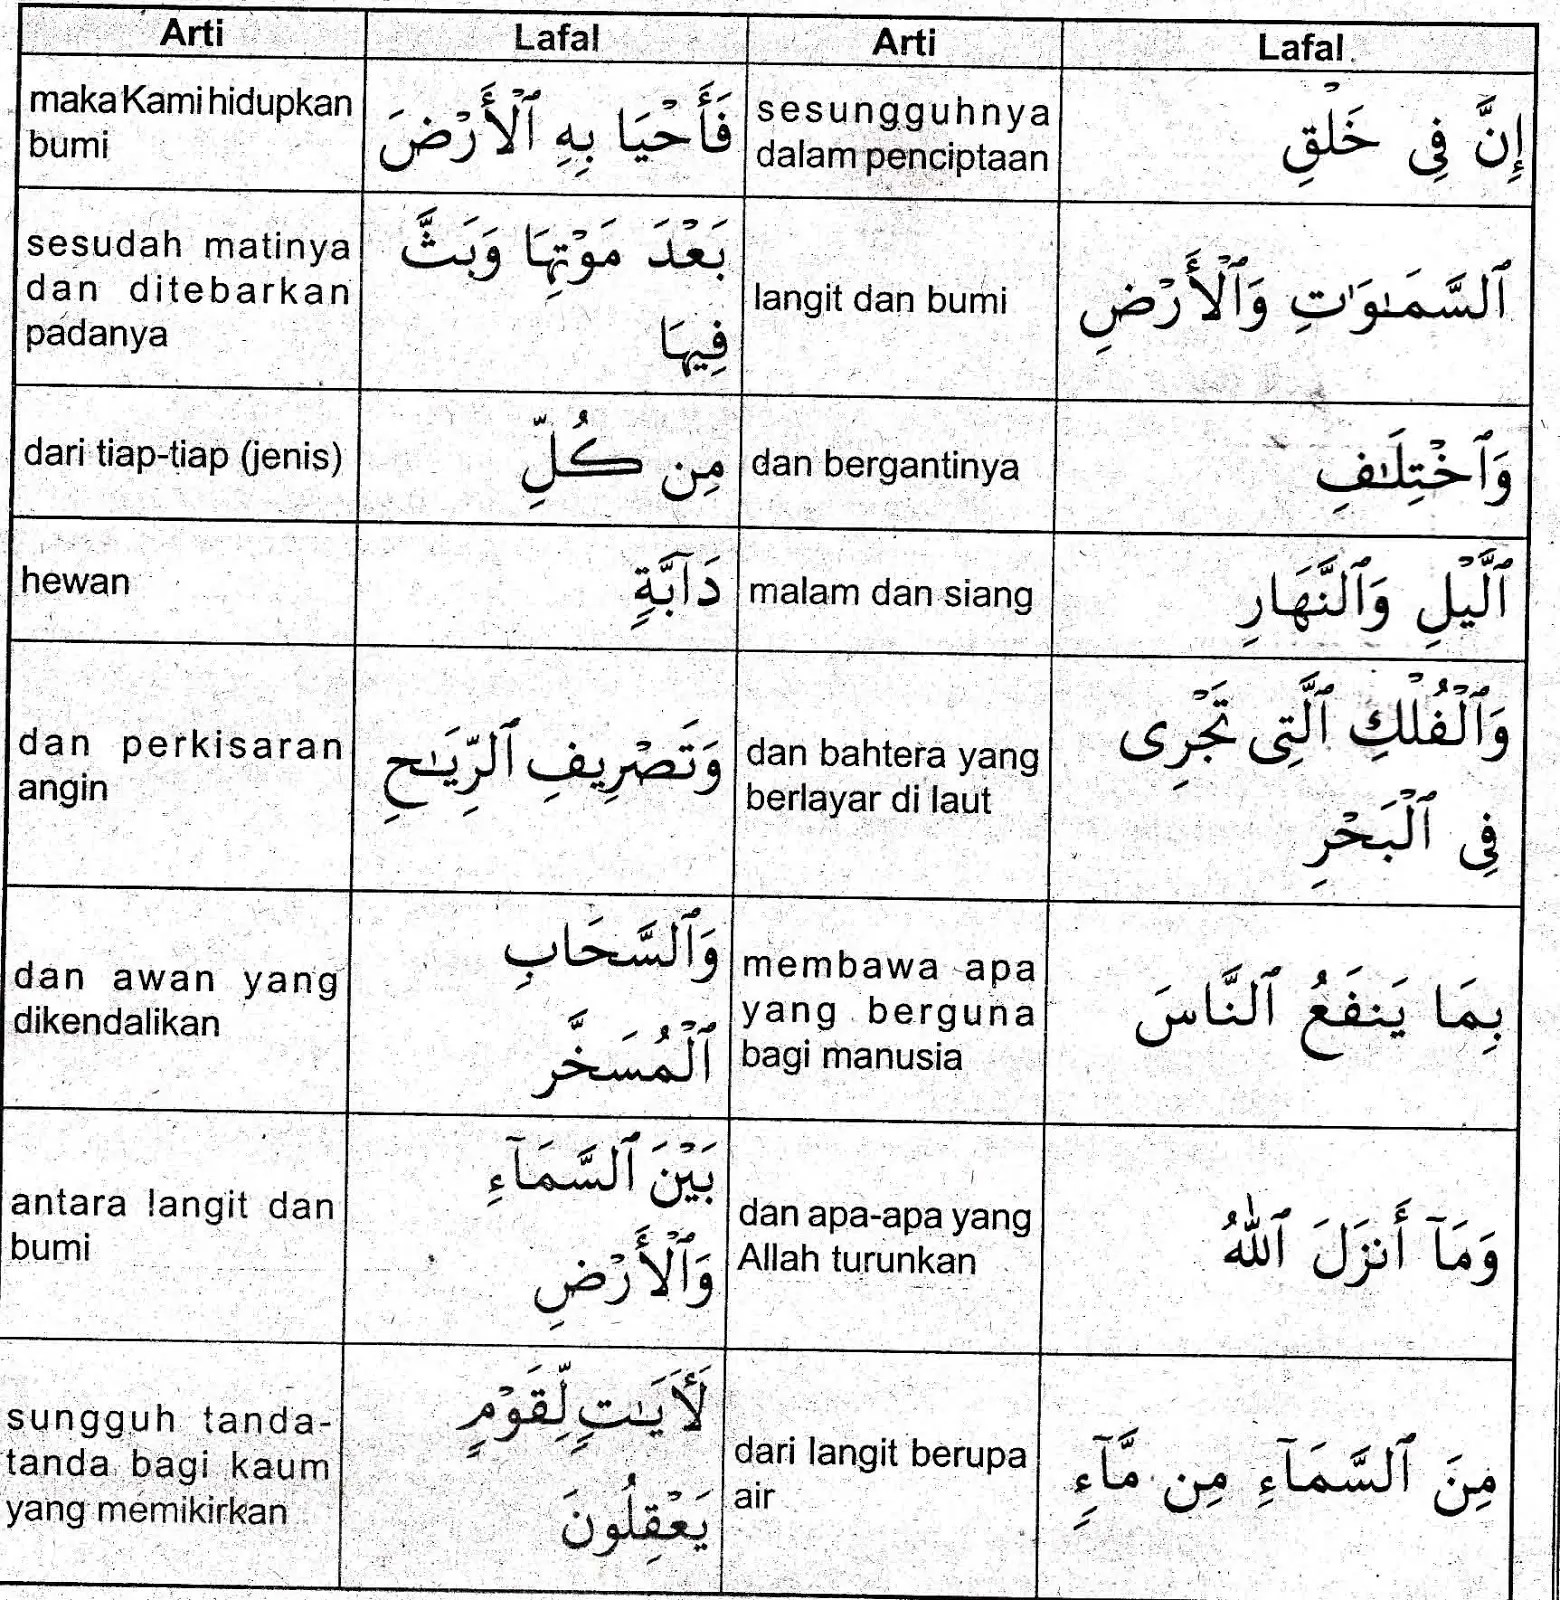 Arti Lafal Arti Lafal
maka Kami hidupkan
bumi
فَأَحْيَا بِهِ ٱلْأَرْضَ
sesungguhnya
dalam penciptaan
إِنَّ فِى خَلْقِ
sesudah matinya
dan ditebarkan
padanya
بَعْدَ مَوْتِهَا وَبَثَّ
فِيهَا
langit dan bumi
ٱلسَّمَـٰوَٰتِ وَٱلْأَرْضِ
dari tiap-tiap (jenis)
مِن كُلِّ
dan bergantinya
وَٱخْتِلَـٰفِ
hewan
دَآبَّةٍ
malam dan siang
ٱلَّيْلِ وَٱلنَّهَارِ
dan perkisaran
angin
وَتَصْرِيفِ ٱلرِّيَـٰحِ
dan bahtera yang
berlayar di laut
وَٱلْفُلْكِ ٱلَّتِى تَجْرِى
فِى ٱلْبَحْرِ
dan awan yang
dikendalikan
وَٱلسَّحَابِ
ٱلْمُسَخَّرِ
membawa apa
yang berguna
bagi manusia
بِمَا يَنفَعُ ٱلنَّاسَ
antara langit dan
bumi
بَيْنَ ٱلسَّمَآءِ
وَٱلْأَرْضِ
dan apa-apa yang
Allah turunkan
وَمَآ أَنزَلَ ٱللَّهُ
sungguh tanda-
tanda bagi kaum
yang memikirkan
لَأَيَـٰتٍ لِّقَوْمٍ
يَعْقِلُونَ
dari langit berupa
air
مِنَ ٱلسَّمَآءِ مِن مَّآءٍ